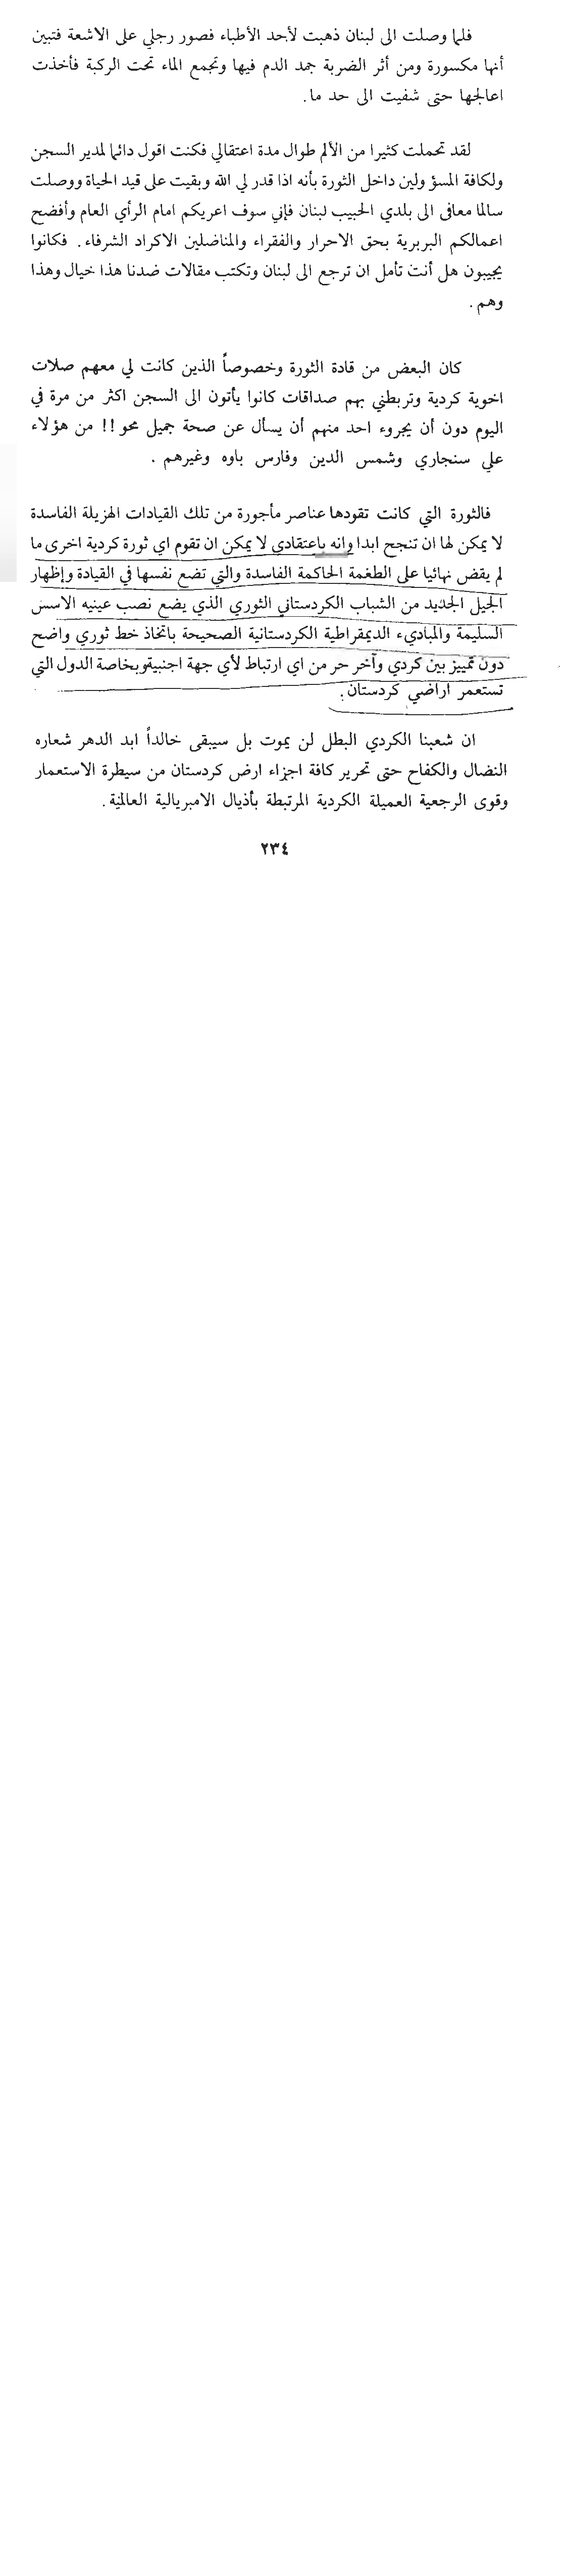 فلما وصلت الى لبنان ذهبت لأحد الأطباء فصور رجلي على الاشعة فتبين
أنها مكسورة ومن أثر الضربة جمد الدم فيها وتجمع الماء تحت الركبة فأخذت
اعالجها حتى شفيت الى حد ما.
لقد تحملت كثيرا من الألم طوال مدة اعتقالي فكنت اقول دائما لمدير السجن
ولكافة المسؤ ولين داخل الثورة بأنه اذا قدر لي الله وبقيت على قيد الحياة ووصلت
سالما معافى الى بلدي الحبيب لبنان فإني سوف اعريكم امام الرأي العام وأفضح
اعمالكم البربرية بحق الاحرار والفقراء والمناضلين الاكراد الشرفاء. فكانوا
يجيبون هل أنت تأمل ان ترجع الى لبنان وتكتب مقالات ضدنا هذا خيال وهذا
وهم.
كان البعض من قادة الثورة وخصوصاً الذين كانت لي معهم صلات
اخوية كردية وتربطني بهم صداقات كانوا يأتون الى السجن اكثر من مرة في
اليوم دون أن يجروء احد منهم أن يسأل عن صحة جميل محو !! من هؤلاء
علي سنجاري وشمس الدين وفارس باوه وغيرهم .
فالثورة التي كانت تقودها عناصر مأجورة من تلك القيادات الهزيلة الفاسدة
لا يمكن لها ان تنجح ابدا وانه باعتقادي لا يمكن ان تقوم اي ثورة كردية اخرى ما
لم يقض نهائيا على الطغمة الحاكمة الفاسدة والتي تضع نفسها في القيادة وإظهار
الجيل الجديد من الشباب الكردستاني الثوري الذي يضع نصب عينيه الاسس
السليمة والمباديء الديمقراطية الكردستانية الصحيحة باتخاذ خط ثوري واضح
دون تمييز بين كردي وآخر حر من اي ارتباط لأي جهة اجنبية وبخاصة الدول التي
تستعمر اراضي كردستان.
ان شعبنا الكردي البطل لن يموت بل سيبقى خالداً ابد الدهر شعاره
النضال والكفاح حتى تحرير كافة اجزاء ارض كردستان من سيطرة الاستعمار
وقوى الرجعية العميلة الكردية المرتبطة بأذيال الامبريالية العالمية.
٢٣٤